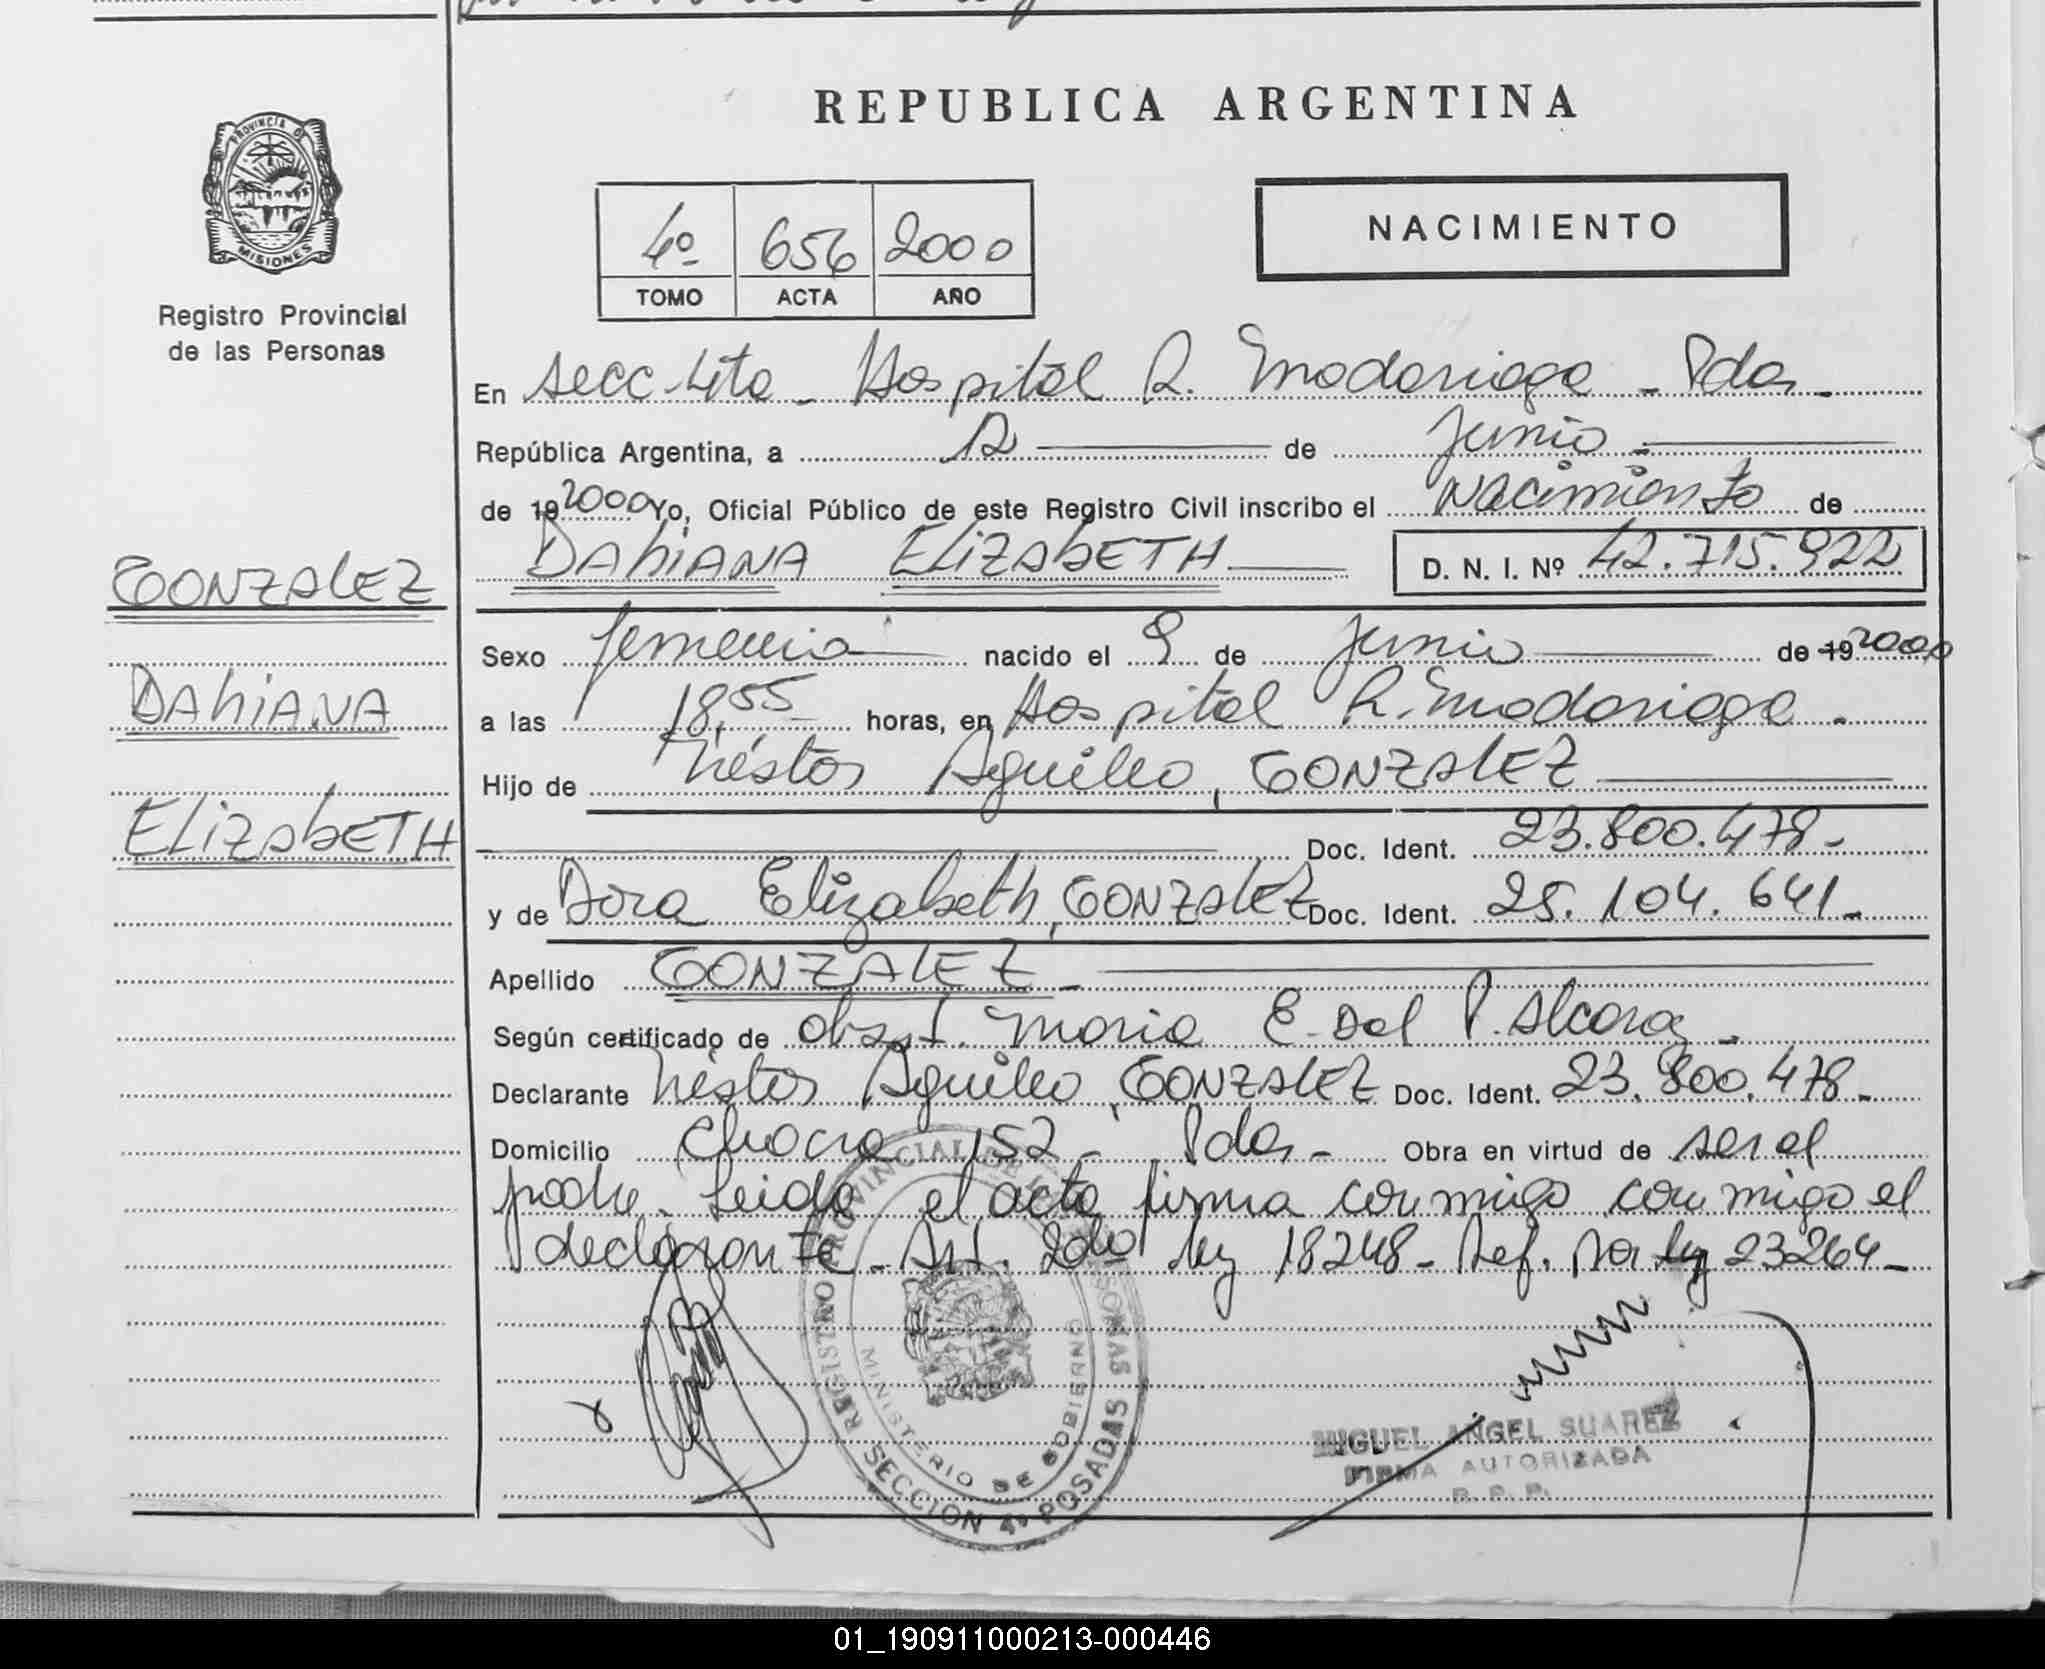 REPUBLICA ARGENTINA
PROVINCIA D
MISIONES
Registro Provincial
de las Personas
4º 656 2000
TOMO ACTA AÑO
NACIMIENTO
En secc. 4ta - Hospital R. Madariaga - Pdas -
República Argentina, a 12 de Junio
de 19 2000 Yo, Oficial Público de este Registro Civil inscribo el Nacimiento de
DAhiANA ELizAbETH D. N. I. Nº 42.715.922
GONZALEZ
DAhiANA
ELizAbETH
Sexo femenino nacido el 9 de Junio de 19 2000
a las 18,55 horas, en Hospital R. Madariaga.
Hijo de Néstor Aquileo, GONZALEZ
Doc. Ident. 23.800.478-
y de Dora Elizabeth, GONZALEZ Doc. Ident. 25.104.641-
Apellido GONZALEZ -
Según certificado de obst. Maria E. Del P. Alcaraz -
Declarante Néstor Aquileo, GONZALEZ Doc. Ident. 23.800.478-
Domicilio Chacra 152 - Pdas - Obra en virtud de ser el
padre. Leida el acta firma conmigo conmigo el
declarante - Art. 2do ley 18248 - Ref. por ley 23264 -
REGISTRO PROVINCIAL DE LAS PERSONAS
MINISTERIO DE GOBIERNO
SECCION 4º POSADAS
MIGUEL ANGEL SUAREZ
FIRMA AUTORIZADA
R. P. P.
01_190911000213-000446